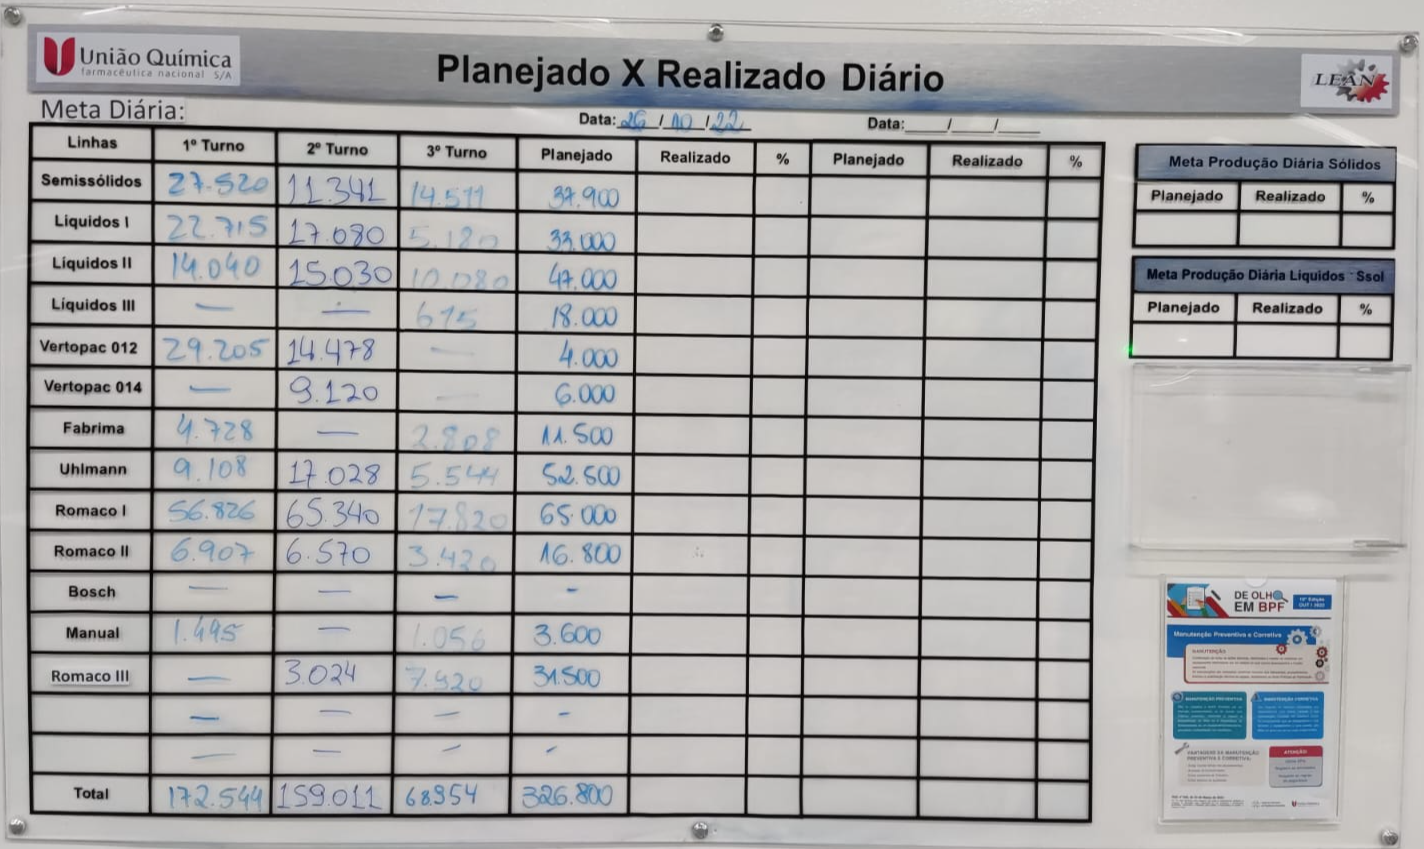 União Química
farmacêutica nacional S/A
Planejado X Realizado Diário
LEAN
Meta Diária:
Data: 26/10/22 Data:___/___/___
Linhas 1º Turno 2º Turno 3º Turno Planejado Realizado % Planejado Realizado %
Semissólidos 27.520 11.341 14.511 37.900
Líquidos I 22.715 17.080 5.180 33.000
Líquidos II 14.040 15.030 10.080 47.000
Líquidos III — — 615 18.000
Vertopac 012 29.205 14.478 — 4.000
Vertopac 014 — 9.120 — 6.000
Fabrima 4.728 — 2.808 11.500
Uhlmann 9.108 17.028 5.544 52.500
Romaco I 56.826 65.340 17.820 65.000
Romaco II 6.907 6.570 3.420 16.800
Bosch — — — -
Manual 1.495 — 1.056 3.600
Romaco III — 3.024 7.920 31.500
— — — -
— — — -
Total 172.544 159.011 68.954 326.800
Meta Produção Diária Sólidos
Planejado Realizado %
Meta Produção Diária Líquidos Ssol
Planejado Realizado %
DE OLHO
EM BPF
Manutenção Preventiva e Corretiva
MANUTENÇÃO
MANUTENÇÃO PREVENTIVA
MANUTENÇÃO CORRETIVA
PREVENTIVA E CORRETIVA:
ATENÇÃO
União Química